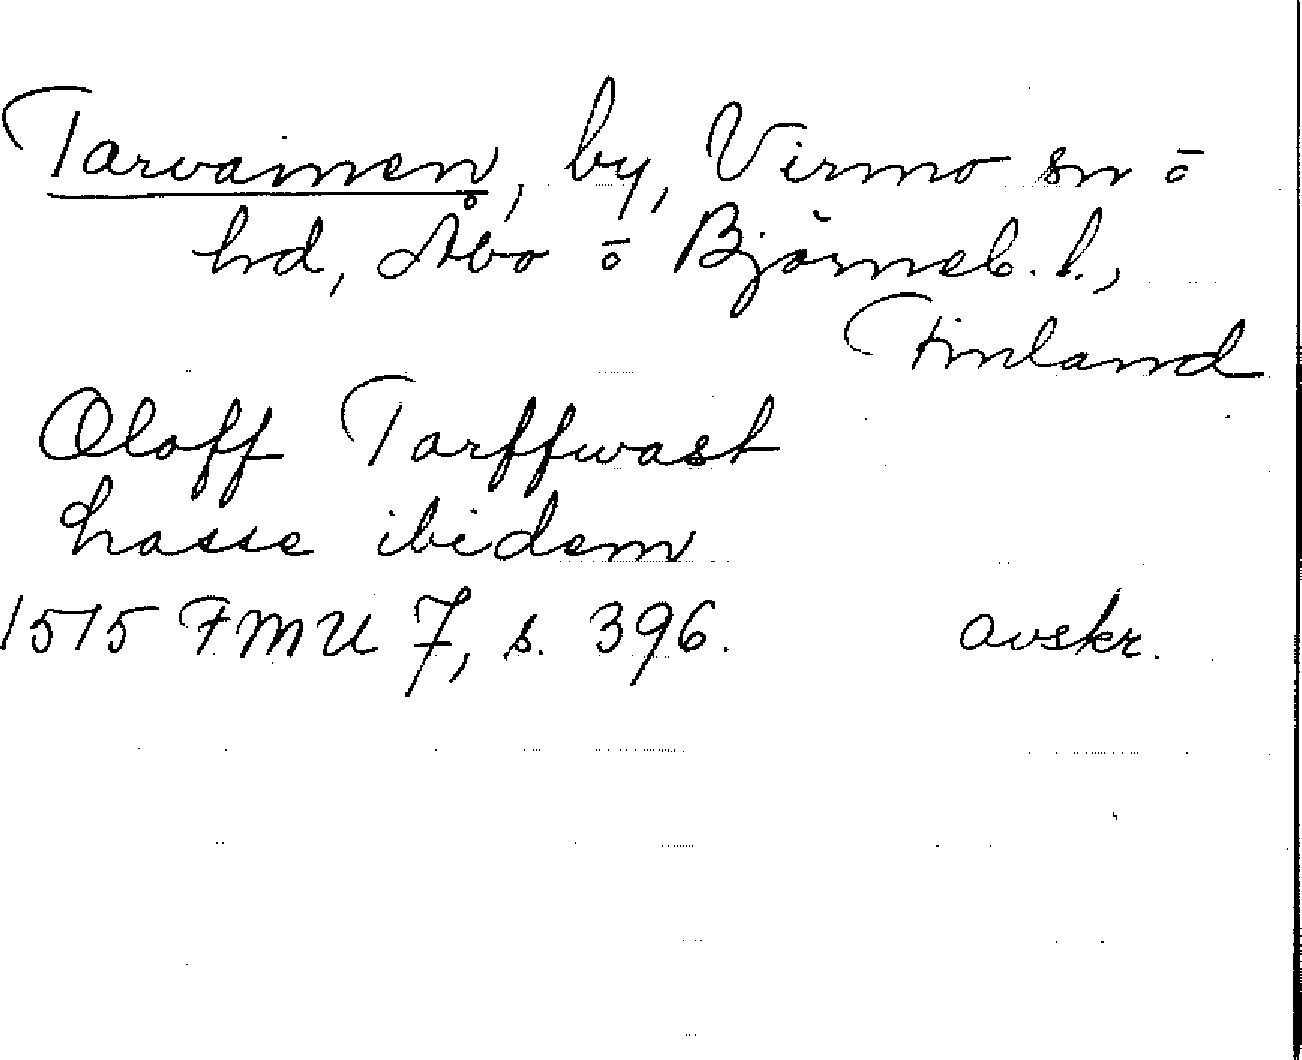 Tarvainen, by, Virmo sn o
hd, Åbo o Björneb. l.,
Finland
Oloff Tarffwast
hasse ibidem
1515 FMU 7, s. 396. avskr.